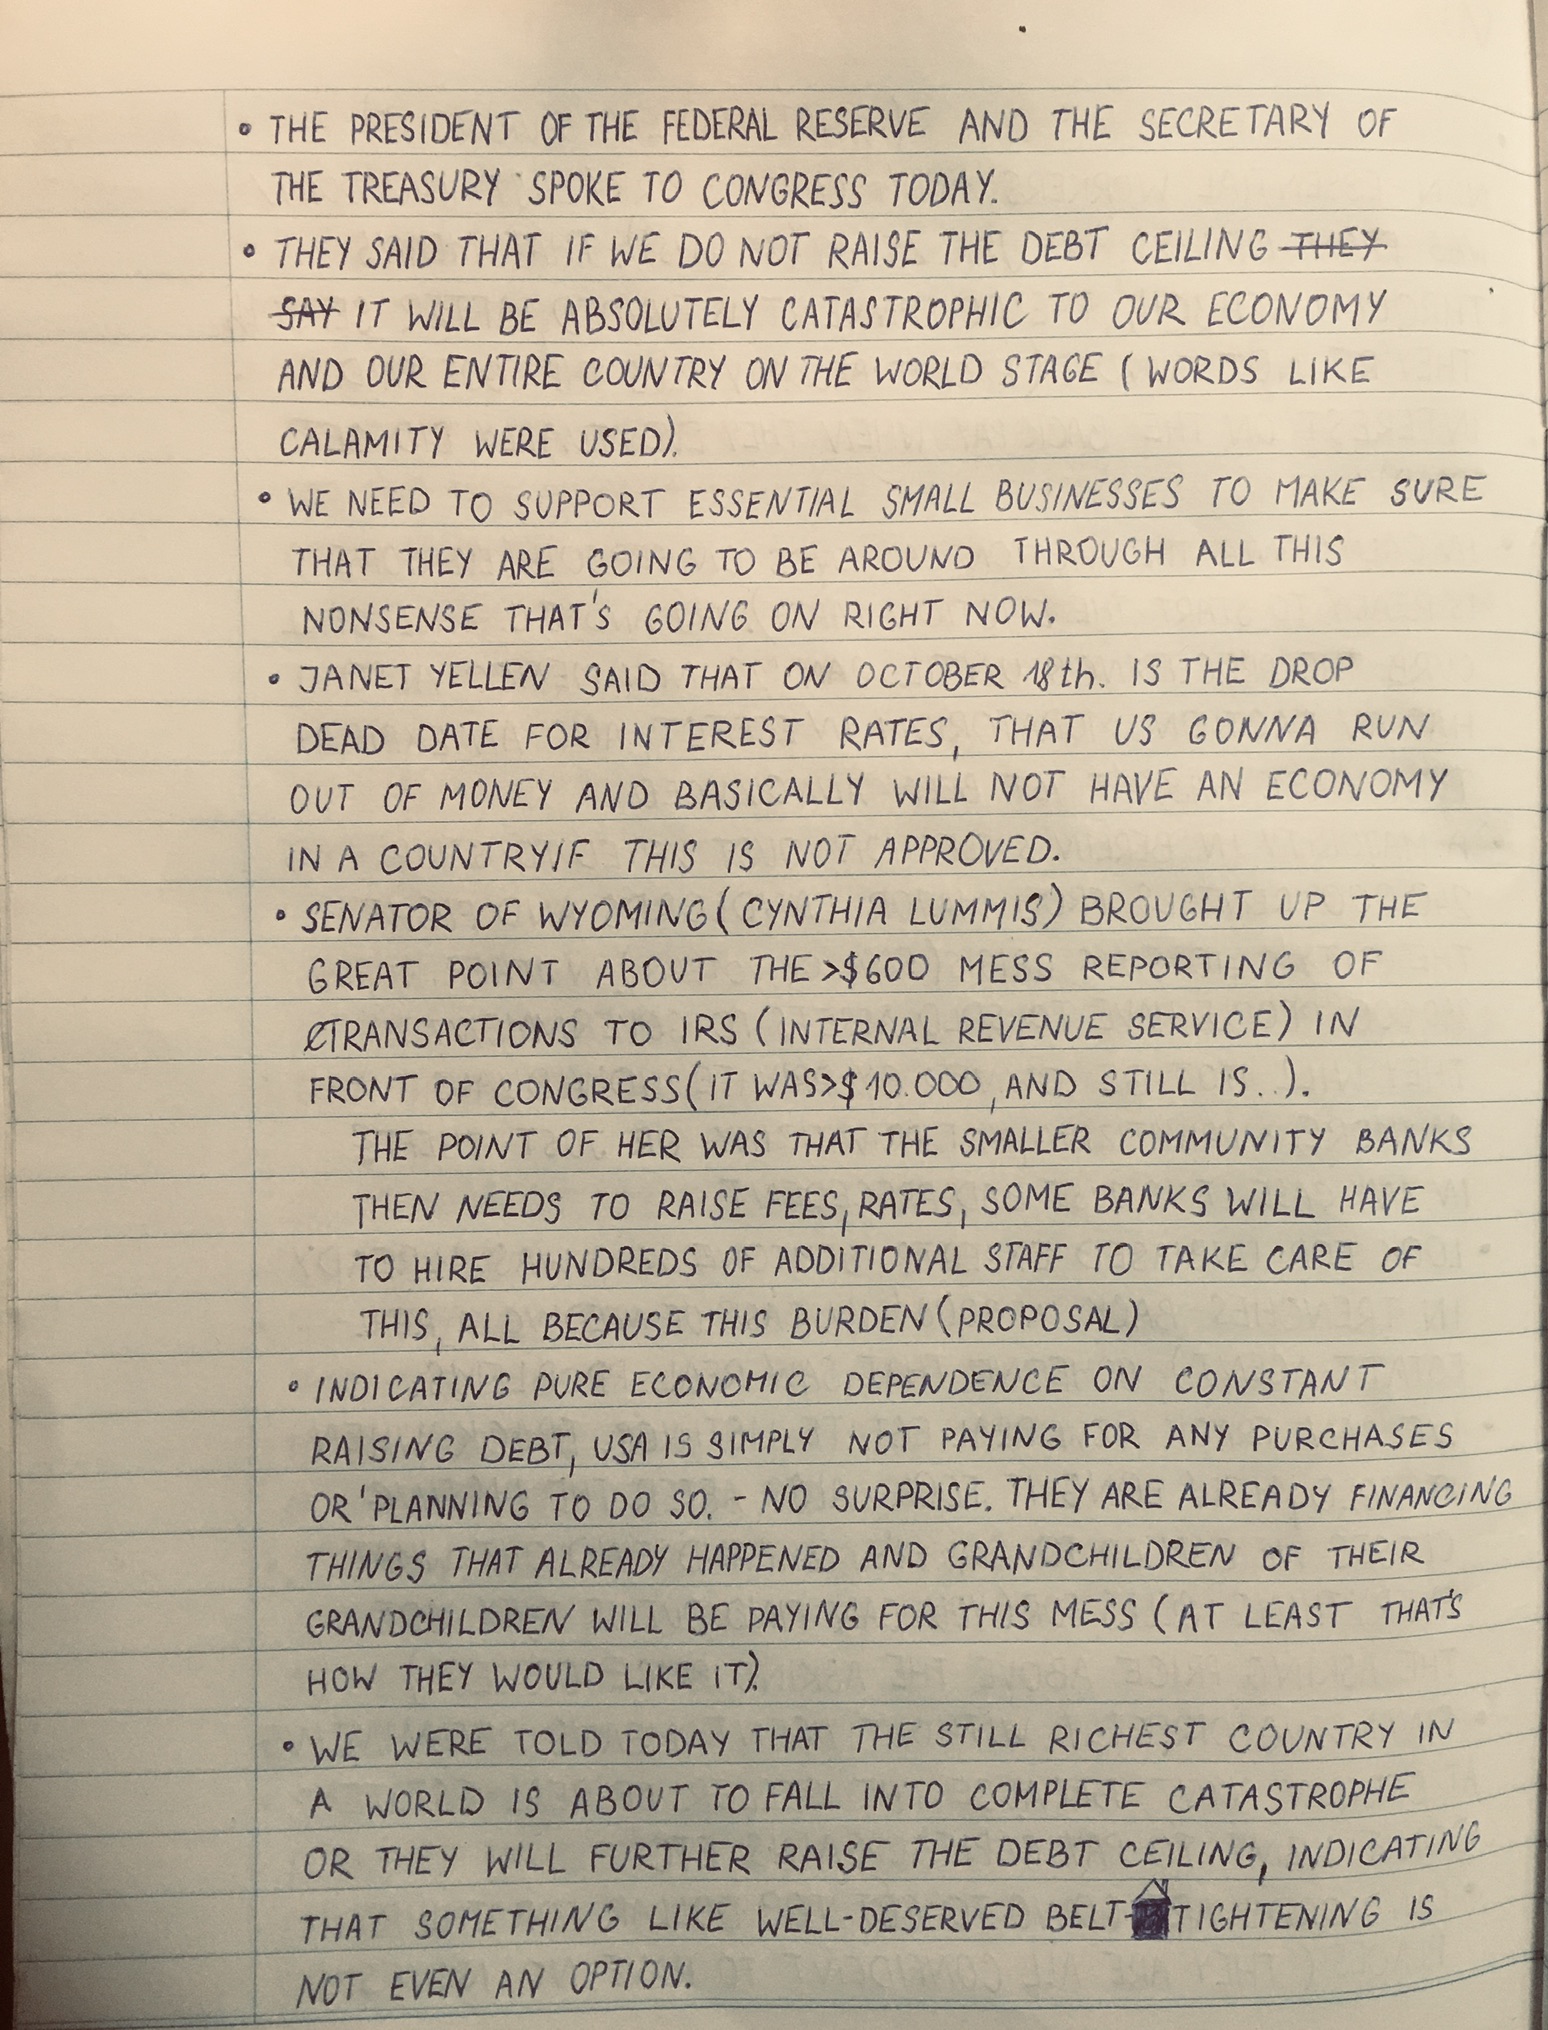 • THE PRESIDENT OF THE FEDERAL RESERVE AND THE SECRETARY OF
THE TREASURY SPOKE TO CONGRESS TODAY.
• THEY SAID THAT IF WE DO NOT RAISE THE DEBT CEILING THEY
SAY IT WILL BE ABSOLUTELY CATASTROPHIC TO OUR ECONOMY
AND OUR ENTIRE COUNTRY ON THE WORLD STAGE (WORDS LIKE
CALAMITY WERE USED).
• WE NEED TO SUPPORT ESSENTIAL SMALL BUSINESSES TO MAKE SURE
THAT THEY ARE GOING TO BE AROUND THROUGH ALL THIS
NONSENSE THAT'S GOING ON RIGHT NOW.
• JANET YELLEN SAID THAT ON OCTOBER 18th. IS THE DROP
DEAD DATE FOR INTEREST RATES, THAT US GONNA RUN
OUT OF MONEY AND BASICALLY WILL NOT HAVE AN ECONOMY
IN A COUNTRY IF THIS IS NOT APPROVED.
• SENATOR OF WYOMING (CYNTHIA LUMMIS) BROUGHT UP THE
GREAT POINT ABOUT THE >$600 MESS REPORTING OF
TRANSACTIONS TO IRS (INTERNAL REVENUE SERVICE) IN
FRONT OF CONGRESS (IT WAS >$10.000, AND STILL IS..).
THE POINT OF HER WAS THAT THE SMALLER COMMUNITY BANKS
THEN NEEDS TO RAISE FEES, RATES, SOME BANKS WILL HAVE
TO HIRE HUNDREDS OF ADDITIONAL STAFF TO TAKE CARE OF
THIS, ALL BECAUSE THIS BURDEN (PROPOSAL)
• INDICATING PURE ECONOMIC DEPENDENCE ON CONSTANT
RAISING DEBT, USA IS SIMPLY NOT PAYING FOR ANY PURCHASES
OR PLANNING TO DO SO. - NO SURPRISE. THEY ARE ALREADY FINANCING
THINGS THAT ALREADY HAPPENED AND GRANDCHILDREN OF THEIR
GRANDCHILDREN WILL BE PAYING FOR THIS MESS (AT LEAST THAT'S
HOW THEY WOULD LIKE IT).
• WE WERE TOLD TODAY THAT THE STILL RICHEST COUNTRY IN
A WORLD IS ABOUT TO FALL INTO COMPLETE CATASTROPHE
OR THEY WILL FURTHER RAISE THE DEBT CEILING, INDICATING
THAT SOMETHING LIKE WELL-DESERVED BELT-TIGHTENING IS
NOT EVEN AN OPTION.